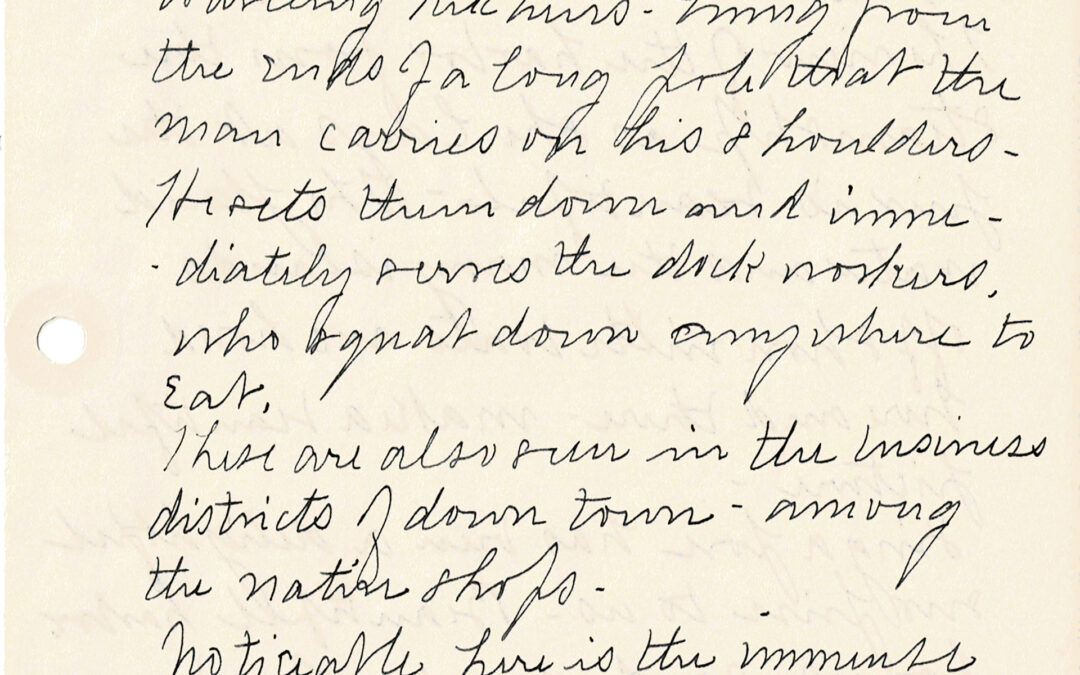 kitchens - hung from
the ends of a long pole that the
man carries on his shoulders -
He sets them down and imme -
- diately serves the dock workers,
who squat down anywhere to
Eat.
These are also seen in the business
districts of down town - among
the native shops -
Noticeable here is the immense